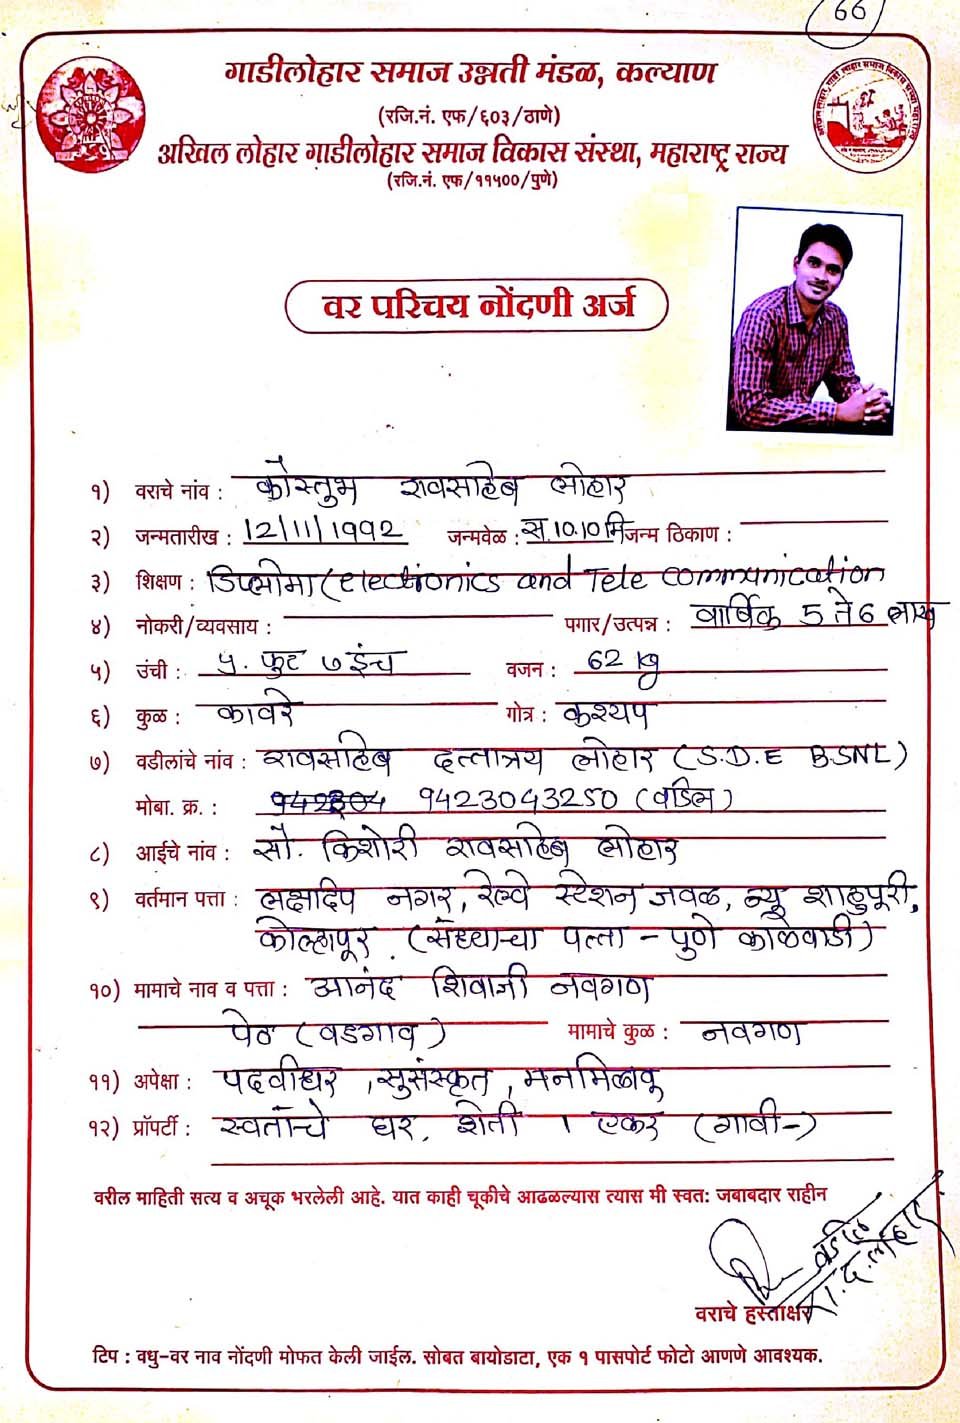 66
गाडीलोहार समाज उन्नती मंडळ, कल्याण
(रजि.नं. एफ/६०३/ठाणे)
अखिल लोहार गाडीलोहार समाज विकास संस्था, महाराष्ट्र राज्य
(रजि.नं. एफ/११५००/पुणे)
वर परिचय नोंदणी अर्ज
१) वराचे नांव : कौस्तुभ रावसाहेब लोहार
२) जन्मतारीख : 12/11/1992 जन्मवेळ : स.10.10मि जन्म ठिकाण :
३) शिक्षण : डिप्लोमा (electronics and Tele communication
४) नोकरी/व्यवसाय : पगार/उत्पन्न : वार्षिक 5 ते 6 लाख
५) उंची : ५. फुट ७ इंच वजन : 62 kg
६) कुळ : कावरे गोत्र : कश्यप
७) वडीलांचे नांव : रावसाहेब दत्तात्रय लोहार (S.D.E BSNL)
मोबा. क्र. : 942304 9423043250 (वडिल)
८) आईचे नांव : सौ. किशोरी रावसाहेब लोहार
९) वर्तमान पत्ता : लक्षदिप नगर, रेल्वे स्टेशन जवळ, न्यू शाहुपूरी,
कोल्हापूर. (सध्याचा पत्ता - पुणे काळेवाडी)
१०) मामाचे नाव व पत्ता : आनंद शिवाजी नवगण
पेठ (वडगाव) मामाचे कुळ : नवगण
११) अपेक्षा : पदवीधर, सुसंस्कृत, मनमिळावू
१२) प्रॉपर्टी : स्वतःचे घर, शेती १ एकर (गावी-)
वरील माहिती सत्य व अचूक भरलेली आहे. यात काही चूकीचे आढळल्यास त्यास मी स्वत: जबाबदार राहीन
वडील
रा. द. लोहार
वराचे हस्ताक्षर
टिप : वधु-वर नाव नोंदणी मोफत केली जाईल. सोबत बायोडाटा, एक १ पासपोर्ट फोटो आणणे आवश्यक.